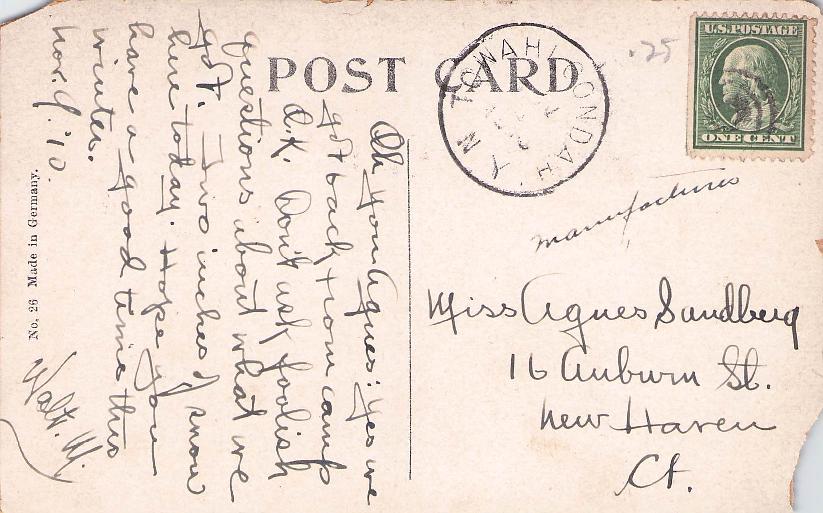 POST CARD
.25
U.S. POSTAGE
ONE CENT
N.Y.
manufactures
Miss Agnes Sandberg
16 Auburn St.
New Haven
Ct.
Oh you Agnes: Yes we
got back from camp
O.K. Don't ask foolish
questions about what we
got. Two inches of snow
here today. Hope you
have a good time this
winter.
Nov. 9. '10.
Walt. W.
No. 26 Made in Germany.